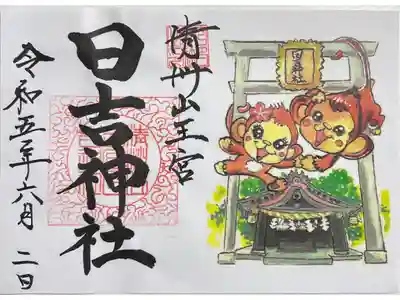 日吉社
清洲山王宮
日吉神社
令和五年六月二日